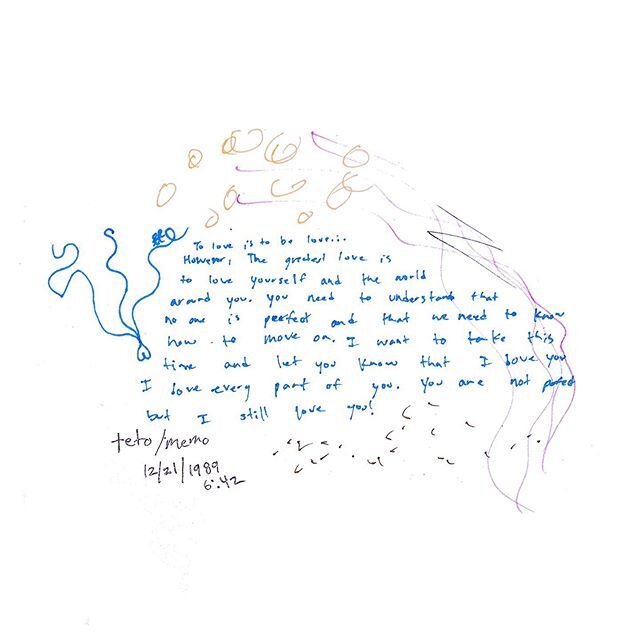 To love is to be love...
However, The greatest love is
to love yourself and the world
around you. you need to understand that
no one is perfect and that we need to know
how to move on. I want to take this
time and let you know that I love you
I love every part of you. you are not perfect
but I still love you!
teto/memo
12/21/1989
6:42